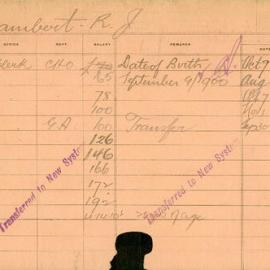 Lambert - R. J.
OFFICE DEPT. SALARY REMARKS
Clerk CHO Date of Birth Oct 9
65 September 9/1900 Aug
78 Oct 7
100 Nov 1
EA 100 Transfer Sep 20
126
146
166
172
192
Transferred to New System
Transferred to New System